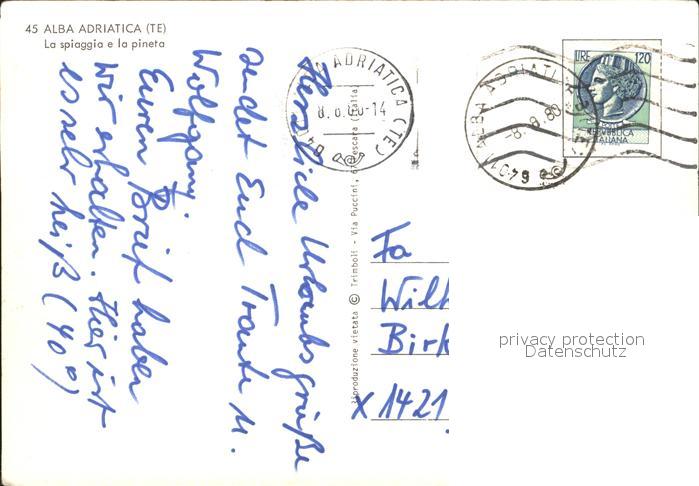 45 ALBA ADRIATICA (TE)
La spiaggia e la pineta
Herzliche Urlaubsgrüße
sendet Euch Traute u.
Wolfgang.
Euren Brief haben
wir erhalten. Hier ist
es sehr heiß (40°)
ALBA ADRIATICA (TE)
8.8.80-14
Riproduzione vietata © Trimboli - Via Puccini, 67 Pescara (Italia)
ALBA ADRIATI
-8.8.80
64011
LIRE 120
REPUBBLICA
ITALIANA
Fa
Wilh
Birk
X 1421
privacy protection
Datenschutz